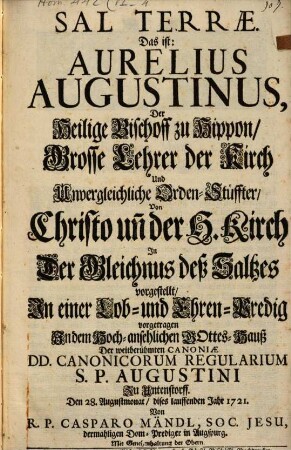 SAL TERRÆ.
Das ist:
AURELIUS
AUGUSTINUS,
Der
Heilige Bischoff zu Hippon/
Grosse Lehrer der Kirch
Und
Unvergleichliche Orden-Stüffter/
Von
Christo uñ der H. Kirch
In
Der Gleichnus deß Saltzes
vorgestellt/
In einer Lob- und Ehren-Predig
vorgetragen
In dem Hoch-ansehlichen GOttes-Hauß
Der weltberühmten CANONIÆ
DD. CANONICORUM REGULARIUM
S. P. AUGUSTINI
Zu Untenstorff.
Den 28. Augustmonat/ dises lauffenden Jahr 1721.
Von
R. P. CASPARO MÄNDL, SOC. JESU,
dermahligen Dom-Prediger in Augspurg.
Mit Genehmhaltung der Obern